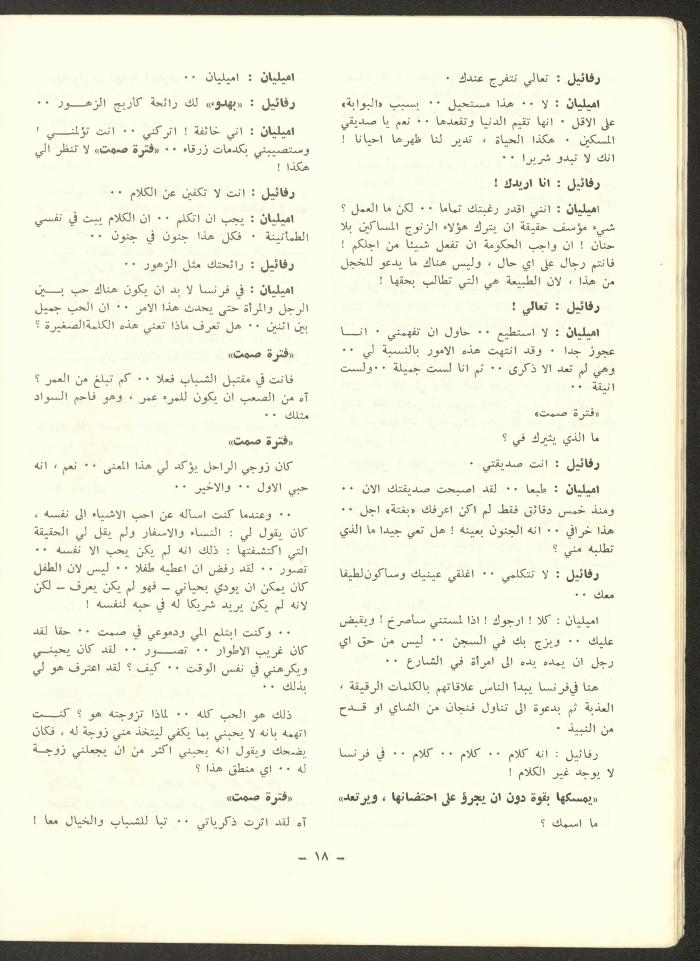 رفائيل : تعالي نتفرج عندك ٠
اميليان : لا ٠٠ هذا مستحيل ٠٠ بسبب «البوابة»
على الاقل ٠ انها تقيم الدنيا وتقعدها ٠٠ نعم يا صديقي
المسكين ٠ هكذا الحياة ، تدير لنا ظهرها احيانا !
انك لا تبدو شريرا ٠٠
رفائيل : انا اريدك !
اميليان : انني اقدر رغبتك تماما ٠٠ لكن ما العمل ؟
شيء مؤسف حقيقة ان يترك هؤلاء الزنوج المساكين بلا
حنان ! ان واجب الحكومة ان تفعل شيئا من اجلكم !
فانتم رجال على اي حال ، وليس هناك ما يدعو للخجل
من هذا ، لان الطبيعة هي التي تطالب بحقها !
رفائيل : تعالي !
اميليان : لا استطيع ٠٠ حاول ان تفهمني ٠ انـــا
عجوز جدا ٠ وقد انتهت هذه الامور بالنسبة لي ٠٠
وهي لم تعد الا ذكرى ٠٠ ثم انا لست جميلة ٠٠ولست
انيقة ٠٠
«فترة صمت»
ما الذي يثيرك في ؟
رفائيل : انت صديقتي ٠
اميليان : طبعا ٠٠ لقد اصبحت صديقتك الان ٠٠
ومنذ خمس دقائق فقط لم اكن اعرفك «بغتة» اجل ٠٠
هذا خرافي ٠٠ انه الجنون بعينه ! هل تعي جيدا ما الذي
تطلبه مني ؟
رفائيل : لا تتكلمي ٠٠ اغلقي عينيك وساكونلطيفا
معك ٠٠
اميليان : كلا ! ارجوك ! اذا لمستني ساصرخ ! ويقبض
عليك ٠٠ ويزج بك في السجن ٠٠ ليس من حق اي
رجل ان يمده يده الى امرأة في الشارع ٠٠
هنا فيفرنسا يبدأ الناس علاقاتهم بالكلمات الرقيقة ،
العذبة ثم بدعوة الى تناول فنجان من الشاي او قــدح
من النبيذ ٠
رفائيل : انه كلام ٠٠ كلام ٠٠ كلام ٠٠ في فرنسا
لا يوجد غير الكلام !
«يمسكها بقوة دون ان يجرؤ على احتضانها ، ويرتعد»
ما اسمك ؟
اميليان : اميليان ٠٠
رفائيل : «بهدوء» لك رائحة كاريج الزهــور ٠٠
اميليان : اني خائفة ! اتركني ٠٠ انت تؤلمنــــي !
وستصيبني بكدمات زرقاء ٠٠ «فترة صمت» لا تنظر الي
هكذا !
رفائيل : انت لا تكفين عن الكلام ٠٠
اميليان : يجب ان اتكلم ٠٠ ان الكلام يبث في نفسي
الطمأنينة ٠ فكل هذا جنون في جنون ٠٠
رفائيل : رائحتك مثل الزهور ٠٠
اميليان : في فرنسا لا بد ان يكون هناك حب بـــين
الرجل والمرأة حتى يحدث هذا الامر ٠٠ ان الحب جميل
بين اثنين ٠٠ هل تعرف ماذا تعني هذه الكلمةالصغيرة ؟
«فترة صمت»
فانت في مقتبل الشباب فعلا ٠٠ كم تبلغ من العمر ؟
آه من الصعب ان يكون للمرء عمر ، وهو فاحم السواد
مثلك ٠٠
«فترة صمت»
كان زوجي الراحل يؤكد لي هذا المعنى ٠٠ نعم ، انه
حبي الاول ٠٠ والاخير ٠٠
٠٠ وعندما كنت اساله عن احب الاشياء الى نفسه ،
كان يقول لي : النساء والاسفار ولم يقل لي الحقيقة
التي اكتشفتها : ذلك انه لم يكن يحب الا نفسه ٠٠
تصور ٠٠ لقد رفض ان اعطيه طفلا ٠٠ ليس لان الطفل
كان يمكن ان يودي بحياتي ــ فهو لم يكن يعرف ــ لكن
لانه لم يكن يريد شريكا له في حبه لنفسه !
٠٠ وكنت ابتلع المي ودموعي في صمت ٠٠ حقا لقد
كان غريب الاطوار ٠٠ تصـــور ٠٠ لقد كان يحبنــي
ويكرهني في نفس الوقت ٠٠ كيف ؟ لقد اعترف هو لي
بذلك ٠٠
ذلك هو الحب كله ٠٠ لماذا تزوجته هو ؟ كنــــت
اتهمه بانه لا يحبني بما يكفي ليتخذ مني زوجة له ، فكان
يضحك ويقول انه يحبني اكثر من ان يجعلني زوجــة
له ٠٠ اي منطق هذا ؟
«فترة صمت»
آه لقد اثرت ذكرياتي ٠٠ تبا للشباب والخيال معا !
– ١٨ –